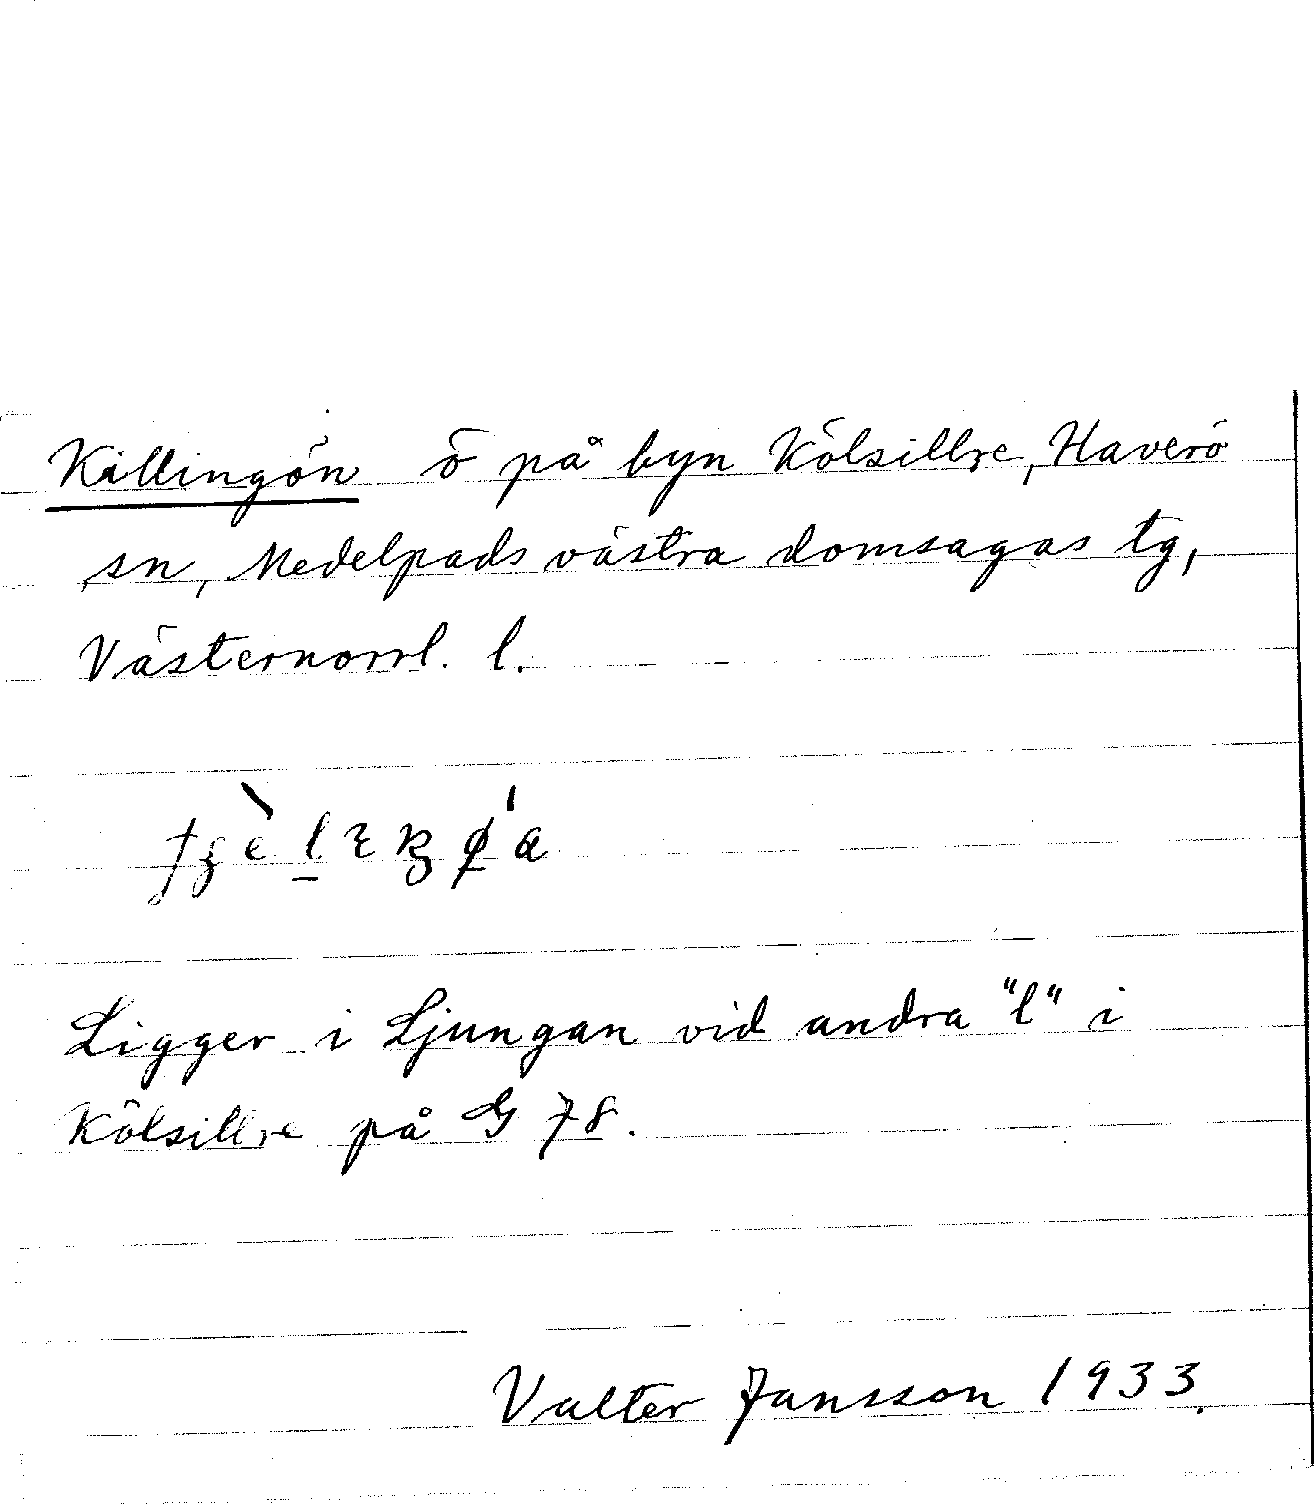 Killingön ö på byn Kölsillre, Haverö
sn, Medelpads västra domsagas tg,
Västernorrl. l.
Ligger i Ljungan vid andra "l" i
Kölsillre på G 78.
Valter Jansson 1933.